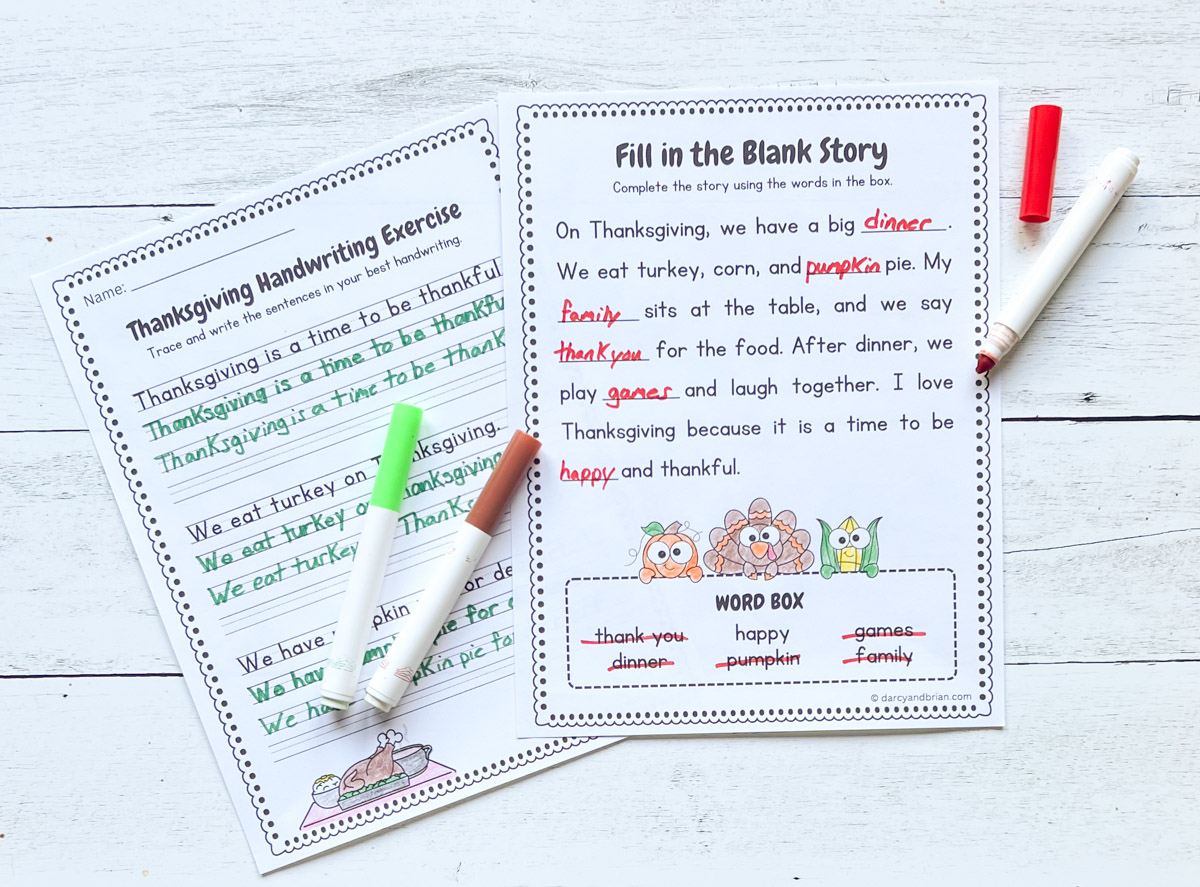 Name:
Thanksgiving Handwriting Exercise
Trace and write the sentences in your best handwriting.
Thanksgiving is a time to be thankful
Thanksgiving is a time to be thankfu
Thanksgiving is a time to be thank
We eat turkey on Thanksgiving.
We eat turkey on Thanksgiving
We eat turkey Thanks
We have pumpkin or de
We have pie for
We ha pkin pie fo
Fill in the Blank Story
Complete the story using the words in the box.
On Thanksgiving, we have a big dinner.
We eat turkey, corn, and pumpkin pie. My
family sits at the table, and we say
thank you for the food. After dinner, we
play games and laugh together. I love
Thanksgiving because it is a time to be
happy and thankful.
WORD BOX
thank you happy games
dinner pumpkin family
© darcyandbrian.com